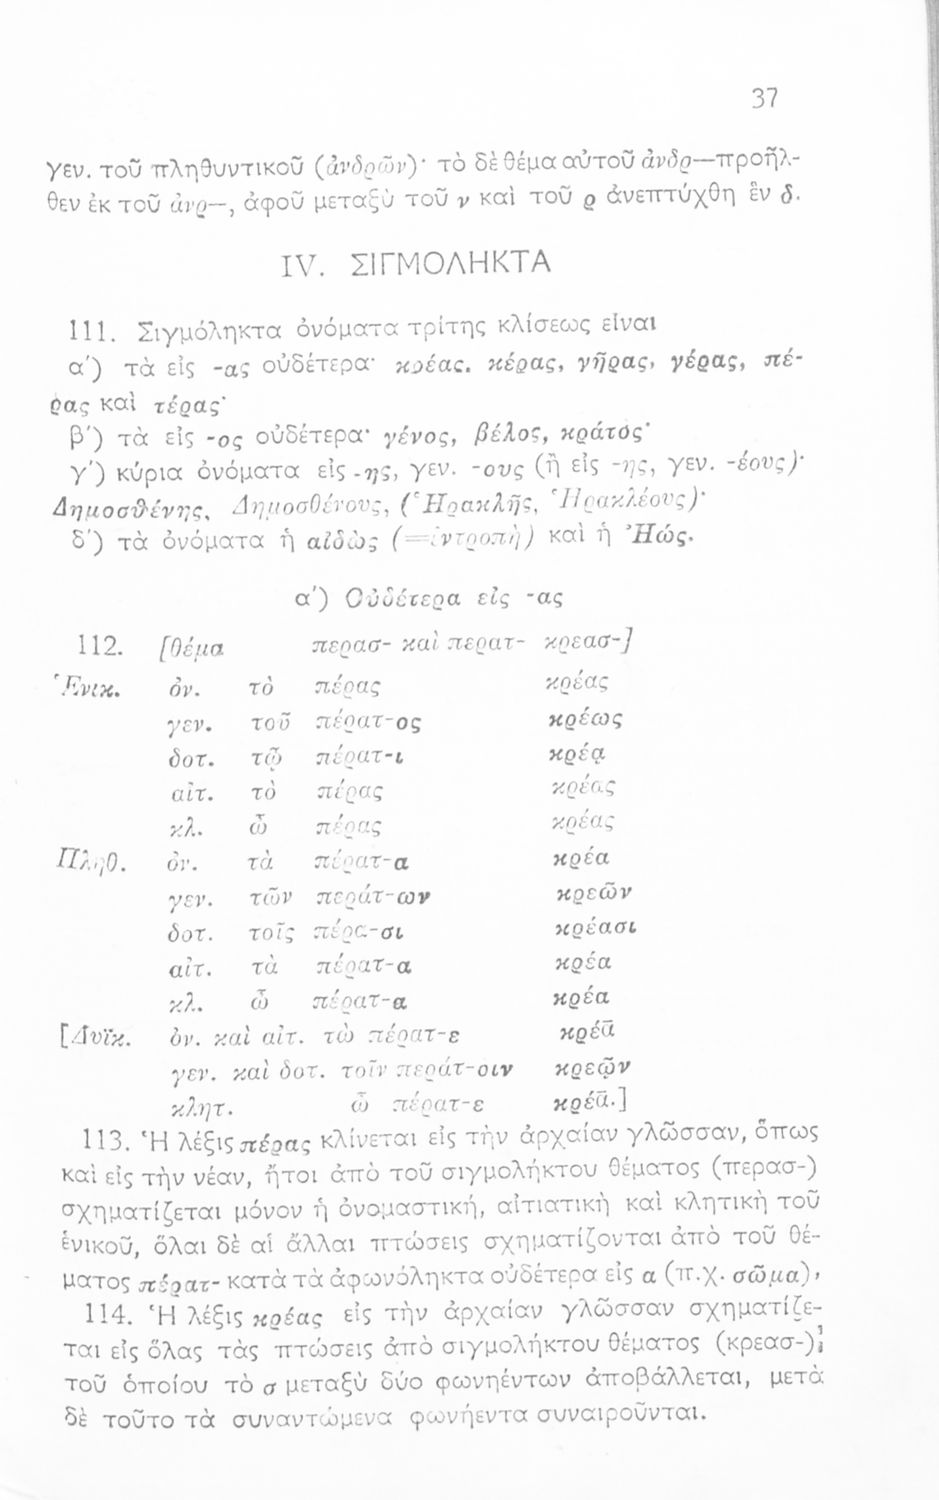 37
γεν. τοῦ πληθυντικοῦ (ἀνδρῶν)· τὸ δὲ θέμα αὐτοῦ ἀνδρ—προῆλ-
θεν ἐκ τοῦ ἀνρ—, ἀφοῦ μεταξὺ τοῦ ν καὶ τοῦ ρ ἀνεπτύχθη ἓν δ.
IV. ΣΙΓΜΟΛΗΚΤΑ
111. Σιγμόληκτα ὀνόματα τρίτης κλίσεως εἶναι
α΄) τὰ εἰς -ας οὐδέτερα· κρέας, κέρας, γῆρας, γέρας, πέ-
ρας καὶ τέρας·
β΄) τὰ εἰς -ος οὐδέτερα· γένος, βέλος, κράτος·
γ΄) κύρια ὀνόματα εἰς -ης, γεν. -ους (ἢ εἰς -ῆς, γεν. -έους)·
Δημοσθένης, Δημοσθένους, (Ἡρακλῆς, Ἡρακλέους)·
δ΄) τὰ ὀνόματα ἡ αἰδὼς (=ἐντροπὴ) καὶ ἡ Ἠώς.
α΄) Οὐδέτερα εἰς -ας
112. [θέμα περασ- καὶ περατ- κρεασ-]
Ἑνικ. ὀν. τὸ πέρας κρέας
γεν. τοῦ πέρατ-ος κρέως
δοτ. τῷ πέρατ-ι κρέᾳ
αἰτ. τὸ πέρας κρέας
κλ. ὦ πέρας κρέας
Πληθ. ὀν. τὰ πέρατ-α κρέα
γεν. τῶν περάτ-ων κρεῶν
δοτ. τοῖς πέρα-σι κρέασι
αἰτ. τὰ πέρατ-α κρέα
κλ. ὦ πέρατ-α κρέα
[Δυϊκ. ὀν. καὶ αἰτ. τὼ πέρατ-ε κρέᾶ
γεν. καὶ δοτ. τοῖν περάτ-οιν κρεῷν
κλητ. ὦ πέρατ-ε κρέᾶ.]
113. Ἡ λέξις πέρας κλίνεται εἰς τὴν ἀρχαίαν γλῶσσαν, ὅπως
καὶ εἰς τὴν νέαν, ἤτοι ἀπὸ τοῦ σιγμολήκτου θέματος (περασ-)
σχηματίζεται μόνον ἡ ὀνομαστική, αἰτιατικὴ καὶ κλητικὴ τοῦ
ἑνικοῦ, ὅλαι δὲ αἱ ἄλλαι πτώσεις σχηματίζονται ἀπὸ τοῦ θέ-
ματος πέρατ- κατὰ τὰ ἀφωνόληκτα οὐδέτερα εἰς α (π.χ. σῶμα),
114. Ἡ λέξις κρέας εἰς τὴν ἀρχαίαν γλῶσσαν σχηματίζε-
ται εἰς ὅλας τὰς πτώσεις ἀπὸ σιγμολήκτου θέματος (κρεασ-),
τοῦ ὁποίου τὸ σ μεταξὺ δύο φωνηέντων ἀποβάλλεται, μετὰ
δὲ τοῦτο τὰ συναντώμενα φωνήεντα συναιροῦνται.